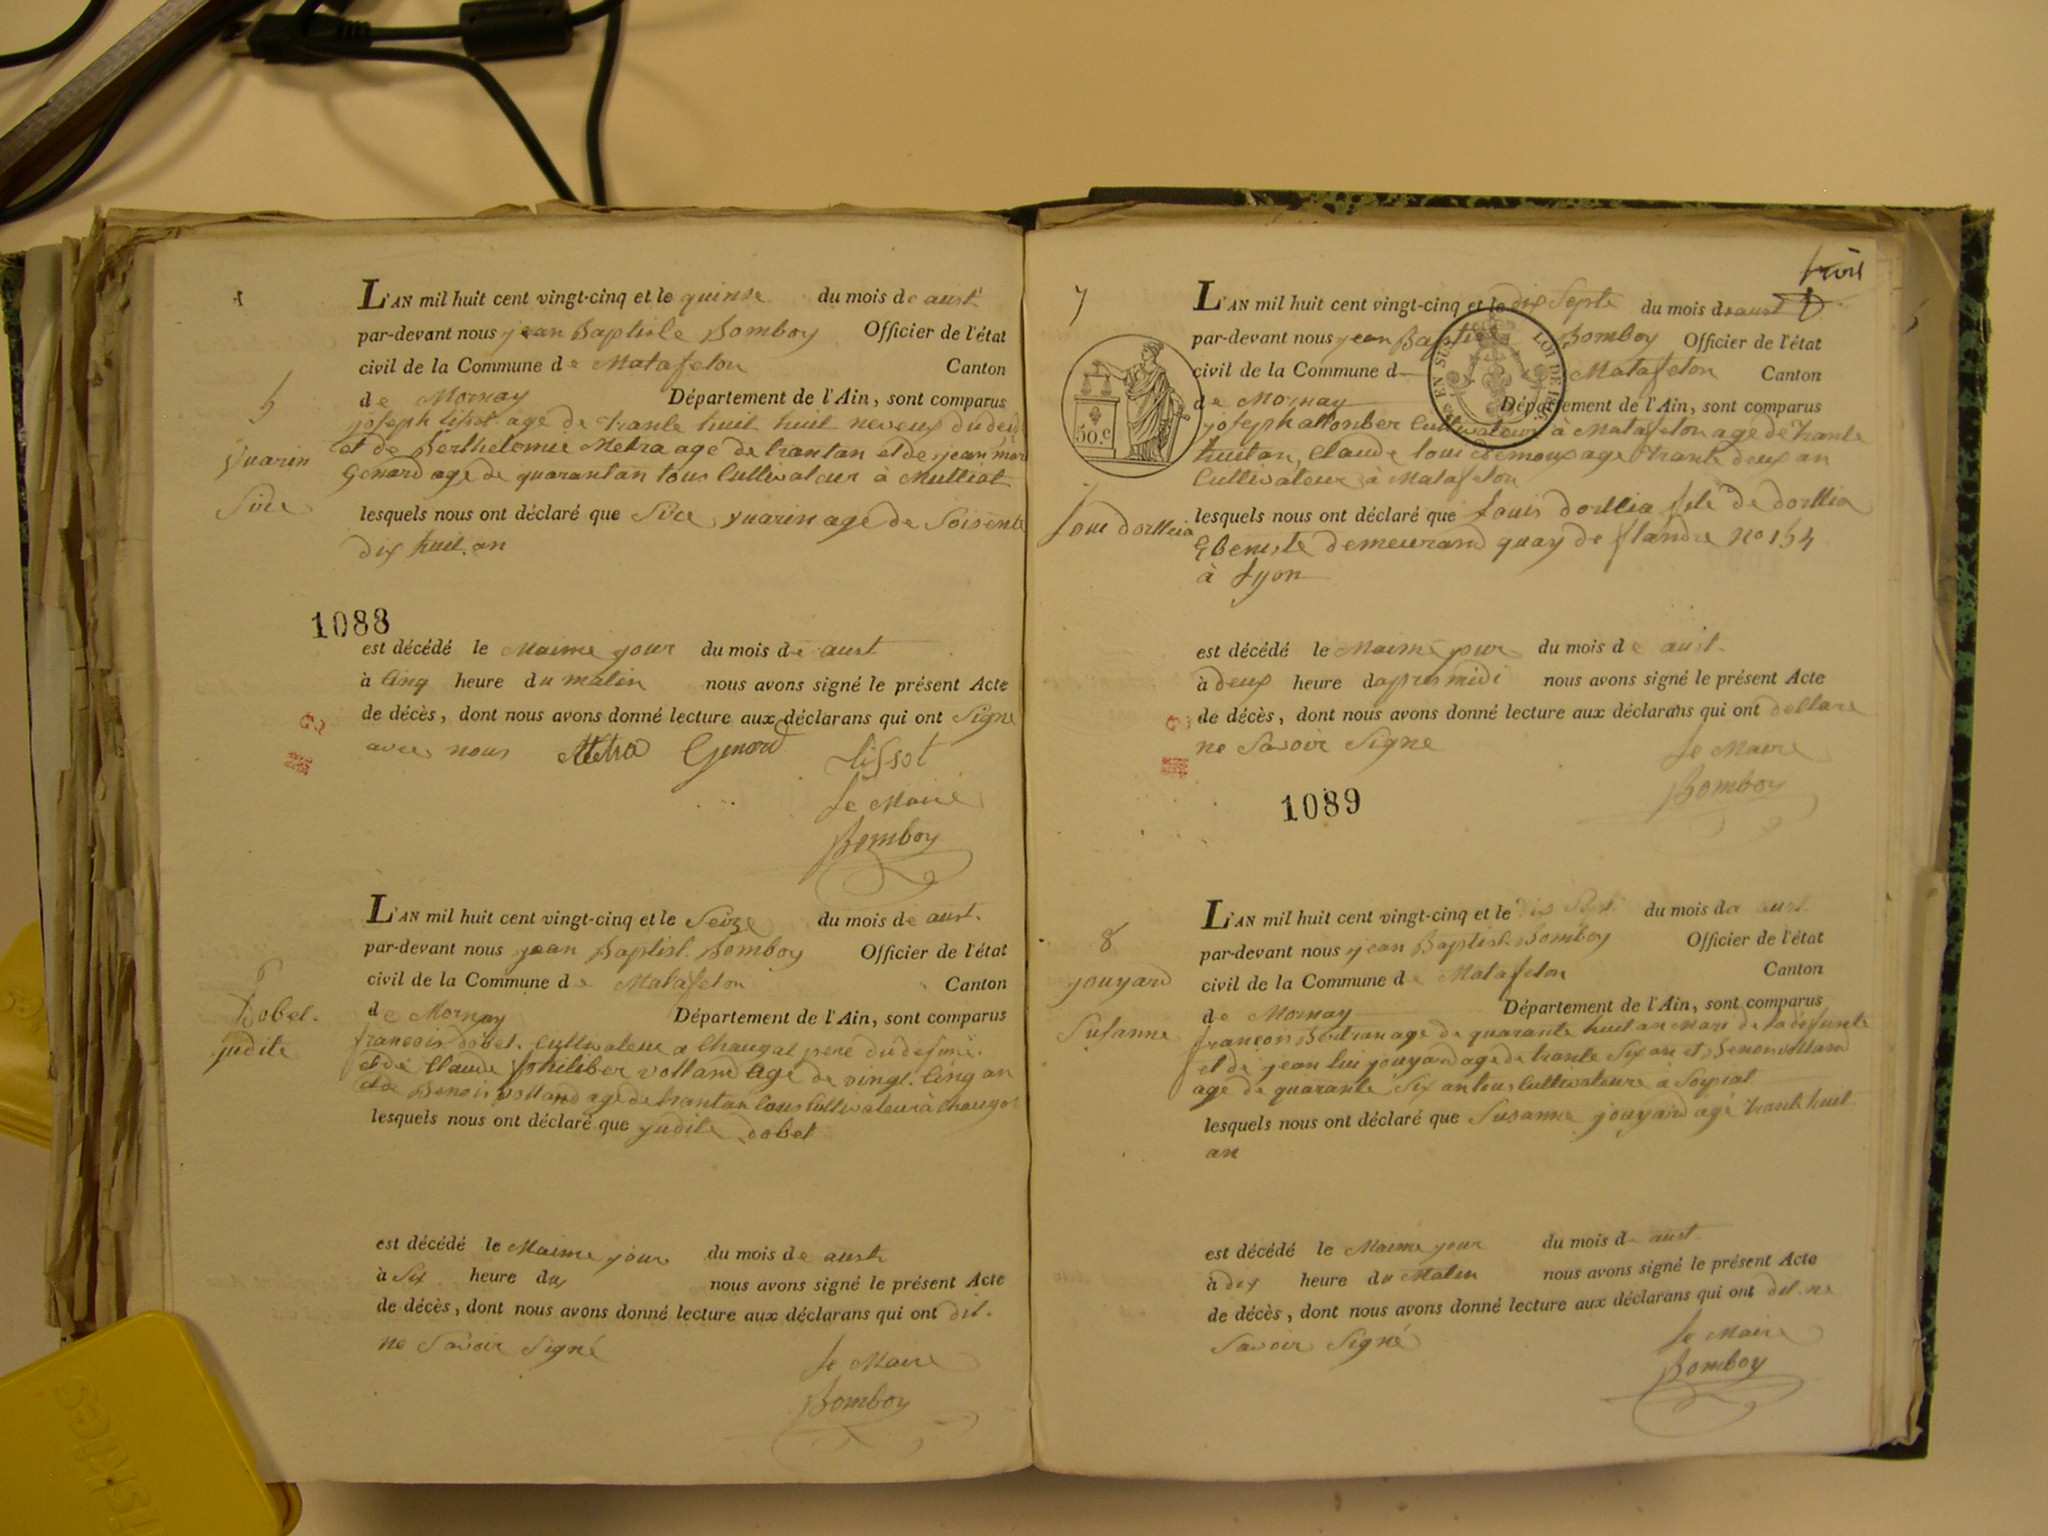 L'AN mil huit cent vingt-cinq et le quinse du mois de aust
par-devant nous jean Baptiste Bomboy Officier de l'état
civil de la Commune de Matafelon Canton
de Mornay Département de l'Ain, sont comparus
joseph age de trante huit huit neveux du
et de Berthelomie Metra age de trantan et de jean
Genard age de quarantan tous Cultivateur à
5
yvarin
lesquels nous ont déclaré que yvarin age de Soisente
dix huit an
1088
est décédé le Maime jour du mois de aust
à Cinq heure du matin nous avons signé le présent Acte
de décès, dont nous avons donné lecture aux déclarans qui ont Signe
avec nous Metra Genard Lissot
Le Maire
Bomboy
L'AN mil huit cent vingt-cinq et le Seize du mois de aust.
par-devant nous jean Baptist. Bomboy Officier de l'état
civil de la Commune de Matafelon Canton
de Mornay Département de l'Ain, sont comparus
6
Dobet.
judite
francois dobet. Cultivateur a Chaugat pere du
et de Claude philiber volland Age de vingt. Cinq an
et de Benoit volland age de trantan tous Cultivateur à Chaugat
lesquels nous ont déclaré que judite dobet
est décédé le Maime jour du mois de aust
à Six heure du nous avons signé le présent Acte
de décès, dont nous avons donné lecture aux déclarans qui ont dit.
ne Savoir Signé
Le Maire
Bomboy
trois
7
L'AN mil huit cent vingt-cinq et le dix Septe du mois de aust
par-devant nous jean Baptiste Bomboy Officier de l'état
civil de la Commune d Matafelon Canton
de Mornay Département de l'Ain, sont comparus
50 c
EN SUS LOI DE
joseph Cultivateur à Matafelon age de trante
huit an, Claude age trante deux an
Cultivateur à Matafelon
Loui dorllia
lesquels nous ont déclaré que Louis dorllia de dorllia
Ebeniste demeurand quay de flandre no 154
à Lyon
est décédé le Maime jour du mois de aust.
à deux heure dapres midi nous avons signé le présent Acte
de décès, dont nous avons donné lecture aux déclarans qui ont dellare
ne Savoir Signe
Le Maire
Bomboy
1089
8
jouyard
Susanne
L'AN mil huit cent vingt-cinq et le dix Sept du mois de aust
par-devant nous jean Baptist. Bomboy Officier de l'état
civil de la Commune de Matafelon Canton
de Mornay Département de l'Ain, sont comparus
francois Bertran age de quarante huit an Mari de la defunte
et de jean lui jouyard age de trante Six an et Benoi volland
age de quarante Six an tous Cultivateure à
lesquels nous ont déclaré que Susanne jouyard agé trante huit
an
est décédé le Maime jour du mois de aust
à dix heure du Matin nous avons signé le présent Acte
de décès, dont nous avons donné lecture aux déclarans qui ont dit ne
Savoir Signé
Le Maire
Bomboy